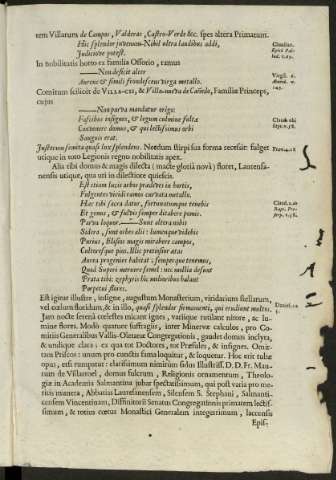 tem Villarum de Campos, Valderas, Castro-Verde &c. spes altera Primatum.
Hic splendor juvenum. Nobil ultra laudibus addi,
Judicióve potest.
In nobilitatis horto ex familia Ossorio, ramus
Non deficit alter
Aureus & simili frondescens virga metallo.
Comitum scilicet de VILLA-CIS, & Villa-nueva de Cañedo, Familiæ Princeps,
cujus
Non parva mandatur origo:
Fascibus insignes, & legum culmine fultæ
Contenere domus, & qui lectissimus orbi
Sanguis erat.
Justorum semita quasi lux splendens. Nondum stirpi sua forma recessit: fulget
utique in toto Legionis regno nobilitatis apex.
Alia tibi domus & magis dilecta; maçte gloriâ novâ; flores, Laurensanensis
utique, qua uti in dilectiore quiescis.
Est etiam lucis arbor prædives in hortis,
Fulgentes viridi ramos curvata metallo.
Hæc tibi sacra datur, fortunatumque tenebis
Et genus, & fulvis semper ditabere pomis.
Parva loquor. Sunt altera nobis
Sidera, sunt orbes alii: lumenque videbis
Purius, Elisios magis mirabere campos,
Cultoresque pios. Illic pretiosior ætas
Aurea progenies habitat: semperque tenemus,
Quod Superi meruere semel: nec mollia desunt
Prata tibi: zephyris illic melioribus halant
Perpetui flores.
Est igitur illustre, insigne, augustum Monasterium, viridarium stellarum,
vel cœlum floridum, & in illo, quasi splendor firmamenti, qui erudiunt multos.
Jam nocte serenâ cœlestes micant ignes, varióque rutilant nitore, & lumine
flores. Modò quatuor suffragiis, inter Minervæ calculos, pro Comitiis
Generalibus Vallis-Oletanæ Congregationis, gaudes domus inclyta,
& undique clara: ex qua tot Doctores, tot Præsules, & insignes. Omittam
Priscos: unum pro cunctis fama loquatur, & loquetur. Hoc erit tubæ
opus, est rumpatur: clarissimum nimirum sidus Illustriss. D.D. Fr. Manuum
de Villarroel, domus fulcrum, Religionis ornamentum, Theologiæ
in Academia Salmantina jubar spectatissimum, qui post varia pro meritis
munera, Abbatias Laurelanensem, Silensem S. Stephani, Salmanticensem
Vincentinam, Diffinitoris Senatus Congregationis primatem lectissimum,
& totius cœtus Monastici Generalem integerrimum, Iaccensis
Epis-